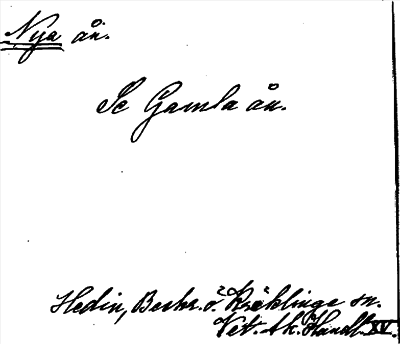 Nya ån.
Se Gamla ån.
Hedin, Beskr. ö. Kräklinge sn.
Vet. Ak. Handl. XV.